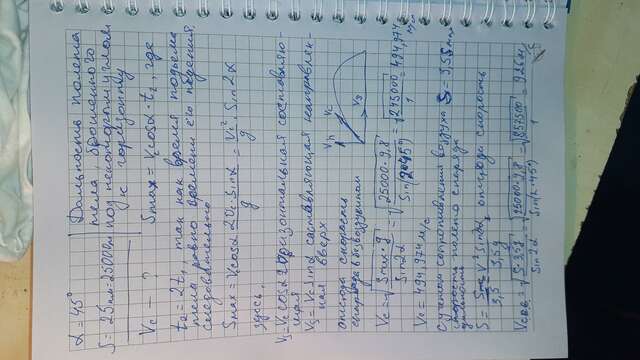 α = 45°
S = 25км = 25000м
Vc – ?
Дальность полета
тела, брошенного
под некоторым углом
к горизонту
Smax = Vc cosα · t₂, где
t₂ = 2t, так как время подъема
тела равно времени его падения,
следовательно
Smax = Vc cosα 2Vc · Sinα / g = Vc² · Sin2α / g
здесь,
V₂ = Vc cosα горизонтальная составляю-
щая
V₃ = Vc Sinα составляющая направлен-
ная вверх
скорость
снаряда в безвоздушном
Vc = √(Smax · g / Sin2α) = √(25000 · 9,8 / Sin(2·45°)) = √(245000 / 1) = 494,974 м/с
Vc = 494,974 м/с
с учетом сопротивления воздуха
скорость полета снаряда
V² Sin2α
скорость
Sin2α
Sin(2·45°)
1